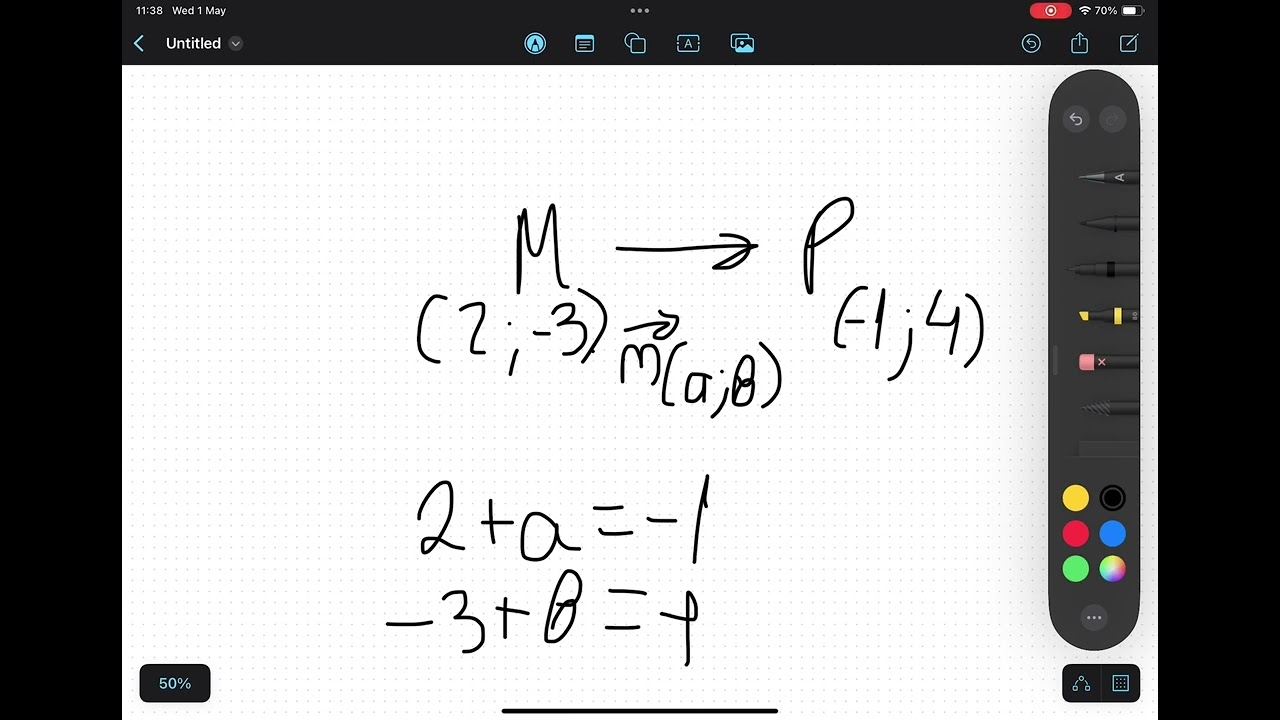 11:38 Wed 1 May 70%
Untitled
M → P
(2;-3) m⃗(a;b) (-1;4)
2+a=-1
-3+b=4
50%